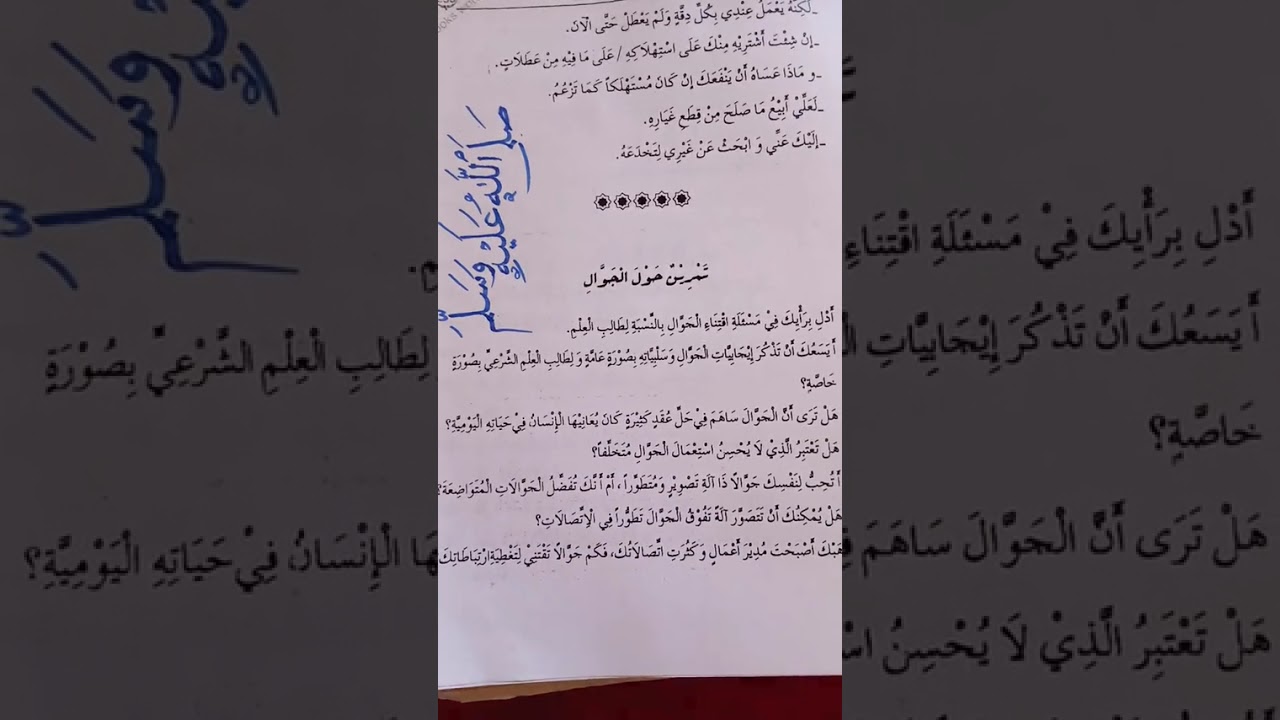 ـ لَكِنَّهُ يَعْمَلُ عِنْدِي بِكُلِّ دِقَّةٍ وَلَمْ يَعْطَلْ حَتَّى الْآنَ.
ـ إِنْ شِئْتَ أَشْتَرِيْهِ مِنْكَ عَلَى اسْتِهْلَاكِهِ / عَلَى مَا فِيْهِ مِنْ عَطَلَاتٍ.
ـ و مَاذَا عَسَاهُ أَنْ يَنْفَعَكَ إِنْ كَانَ مُسْتَهْلَكاً كَمَا تَزْعُمُ.
ـ لَعَلِّيْ أَبِيْعُ مَا صَلَحَ مِنْ قِطَعِ غَيَارِهِ.
ـ إِلَيْكَ عَنِّي وَ ابْحَثْ عَنْ غَيْرِي لِتَخْدَعَهُ.
صَلَى اللَّهِ عَلَيْهِ وَسَلَّمَ
تَمْرِيْنٌ حَوْلَ الْجَوَّالِ
أَدْلِ بِرَأْيِكَ فِيْ مَسْئَلَةِ اقْتِنَاءِ الْجَوَّالِ بِالنِّسْبَةِ لِطَالِبِ الْعِلْمِ.
أَ يَسَعُكَ أَنْ تَذْكُرَ إِيْجَابِيَّاتِ الْجَوَّالِ وَسَلْبِيَّاتِهِ بِصُوْرَةٍ عَامَّةٍ وَ لِطَالِبِ الْعِلْمِ الشَّرْعِيِّ بِصُوْرَةٍ
خَاصَّةٍ؟
هَلْ تَرَى أَنَّ الْجَوَّالَ سَاهَمَ فِيْ حَلِّ عُقَدٍ كَثِيْرَةٍ كَانَ يُعَانِيْهَا الْإِنْسَانُ فِيْ حَيَاتِهِ الْيَوْمِيَّةِ؟
هَلْ تَعْتَبِرُ الَّذِيْ لَا يُحْسِنُ اسْتِعْمَالَ الْجَوَّالِ مُتَخَلِّفاً؟
أَ تُحِبُّ لِنَفْسِكَ جَوَّالًا ذَا آلَةِ تَصْوِيْرٍ وَمُتَطَوِّراً ، أَمْ أَنَّكَ تُفَضِّلُ الْجَوَّالَاتِ الْمُتَوَاضِعَةَ؟
هَلْ يُمْكِنُكَ أَنْ تَتَصَوَّرَ آلَةً تَفُوْقُ الْجَوَّالَ تَطَوُّراً فِي الْاِتِّصَالَاتِ؟
هَبْكَ أَصْبَحْتَ مُدِيْرَ أَعْمَالٍ وَ كَثُرَتِ اتِّصَالَاتُكَ، فَكَمْ جَوَّالًا تَقْتَنِيْ لِتَغْطِيَةِ ارْتِبَاطَاتِكَ